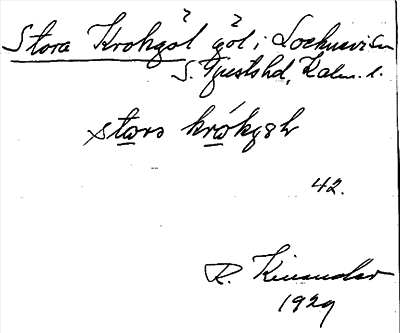 Stora Krokgöl göl i Locknevi sn
S. Tjustshd, Kalm. l.
stora krókgöl
42.
R. Kinander
1929